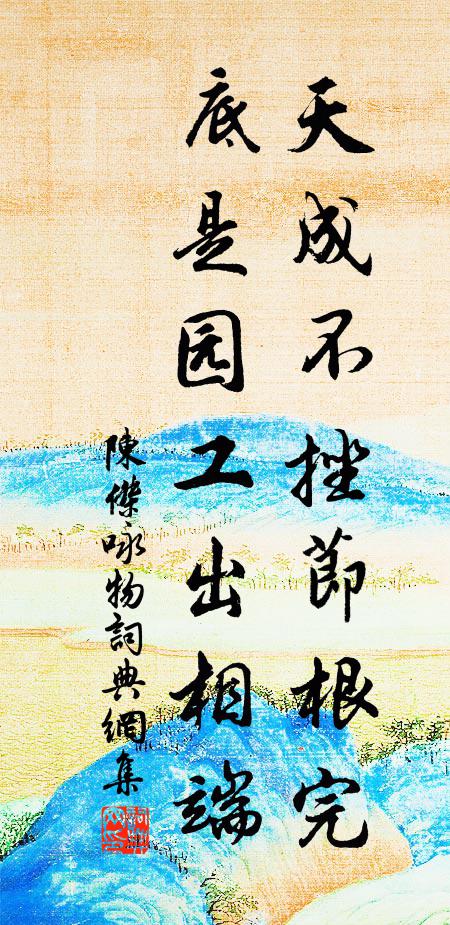 天成不挫節根完
底是园工出相端
陳傑咏物詞典網集